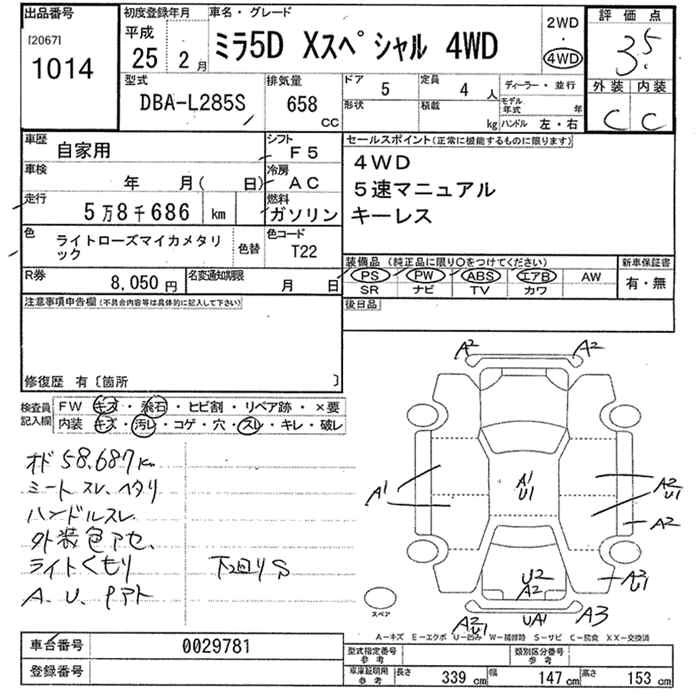 出品番号
[2067]
1014
初度登録年月
平成
25 2月
車名・グレード
ミラ5D Xスペシャル 4WD
2WD
4WD
評価点
3.5
外装 内装
C C
型式
DBA-L285S
排気量
658 cc
ドア 5
定員 4人
形状
積載 kg
ディーラー・並行
モデル年式 年
ハンドル 左・右
車歴 自家用
シフト F5
車検 年 月( 日)
冷房 AC
走行 5万8千686 km
燃料 ガソリン
色 ライトローズマイカメタリック
色替
色コード T22
R券 8,050円
名変通知期限 月 日
セールスポイント(正常に機能するものに限ります)
4WD
5速マニュアル
キーレス
装備品 (純正品に限り○をつけてください)
PS PW ABS エアB AW
SR ナビ TV カワ
新車保証書
有・無
後日品
注意事項申告欄(不具合内容等は具体的に記入して下さい)
修復歴 有〔箇所 〕
検査員記入欄
FW キズ・飛石・ヒビ割・リペア跡・×要
内装 キズ・汚レ・コゲ・穴・スレ・キレ・破レ
オド 58,687km
ミートスレ、ヘタリ
ハンドルスレ
外装色アセ、
ライトくもり 下回りS
A、U、Pアト
A2 A2
A1
A1 U1
A2 U1
A2
U2
A2
A2 U1
A2 U1
UA1
A3
スペア
A－キズ E－エクボ U－凹み W－補修跡 S－サビ C－腐食 XX－交換済
車台番号 0029781
登録番号
型式指定番号 参考
類別区分番号 参考
車庫証明用 参考
長さ 339 cm
幅 147 cm
高さ 153 cm